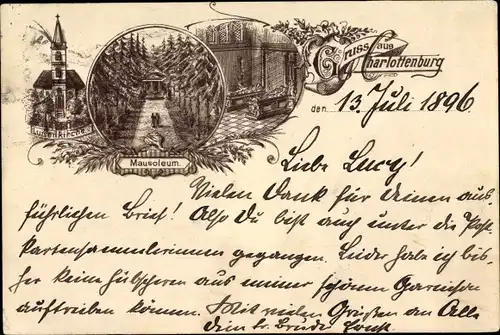 Gruss aus
Charlottenburg
den 13. Juli 1896
Luisenkirche
Mausoleum.
Liebe Lucy!
Vielen Dank für Deinen aus-
führlichen Brief! Also Du bist auch unter die Post-
kartensammlerinnen gegangen. Leider habe ich bis-
her keine hübscheren aus unser schönen Garnison
auftreiben können. Mit vielen Grüßen an Alle
Dein tr. Bruder